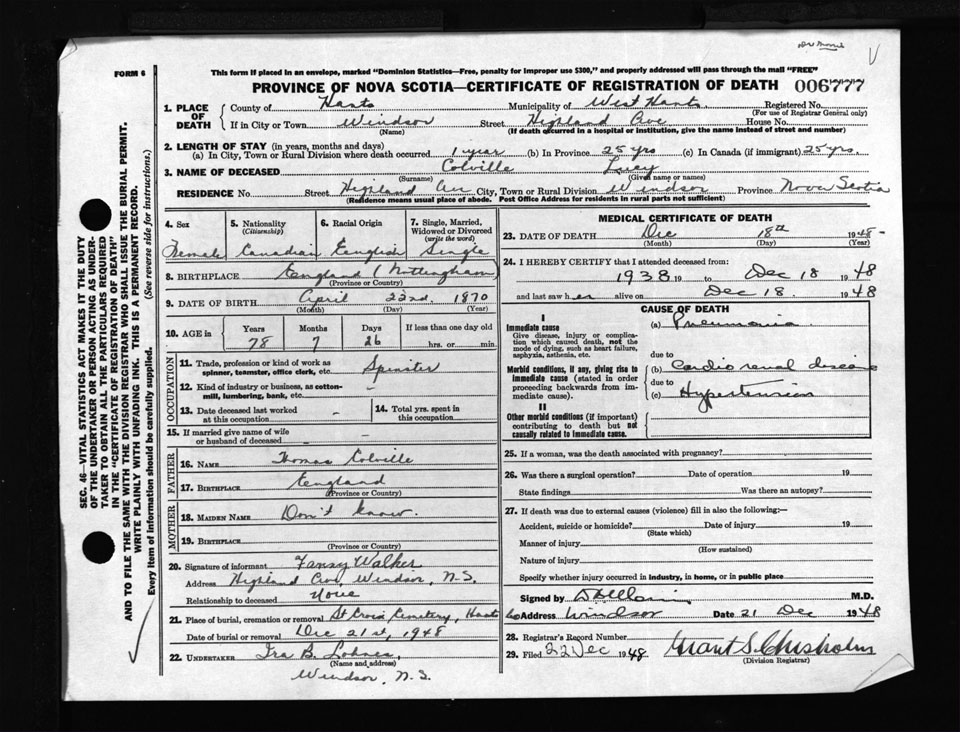 Dr Morris V
FORM 6
This form if placed in an envelope, marked "Dominion Statistics—Free, penalty for improper use $300," and properly addressed will pass through the mail "FREE"
PROVINCE OF NOVA SCOTIA—CERTIFICATE OF REGISTRATION OF DEATH 006777
1. PLACE OF DEATH County of Hants Municipality of West Hants Registered No.
(For use of Registrar General only)
If in City or Town Windsor Street Highland Ave House No.
(Name) (If death occurred in a hospital or institution, give the name instead of street and number)
2. LENGTH OF STAY (in years, months and days)
(a) In City, Town or Rural Division where death occurred 1 year (b) In Province 25 yrs (c) In Canada (if immigrant) 25 yrs.
3. NAME OF DECEASED Colville Lucy
(Surname) (Given name or names)
RESIDENCE No. Street Highland Ave City, Town or Rural Division Windsor Province Nova Scotia
(Residence means usual place of abode. Post Office Address for residents in rural parts not sufficient)
4. Sex 5. Nationality (Citizenship) 6. Racial Origin 7. Single, Married, Widowed or Divorced (write the word)
Female Canadian English Single
8. BIRTHPLACE England (Nottingham)
(Province or Country)
9. DATE OF BIRTH April 22nd. 1870
(Month) (Day) (Year)
10. AGE in Years Months Days If less than one day old
78 7 26 hrs. or min.
OCCUPATION
11. Trade, profession or kind of work as spinner, teamster, office clerk, etc. Spinster
12. Kind of industry or business, as cotton-mill, lumbering, bank, etc.
13. Date deceased last worked at this occupation - 14. Total yrs. spent in this occupation -
15. If married give name of wife or husband of deceased -
FATHER
16. NAME Thomas Colville
17. BIRTHPLACE England
(Province or Country)
MOTHER
18. MAIDEN NAME Don't know.
19. BIRTHPLACE
(Province or Country)
20. Signature of informant Fanny Walker
Address Highland Ave, Windsor, N.S.
Relationship to deceased None
21. Place of burial, cremation or removal St Croix Cemetery, Hants Co
Date of burial or removal Dec 21st, 1948
22. UNDERTAKER Ira B. Lohnes,
(Name and address)
Windsor, N.S.
MEDICAL CERTIFICATE OF DEATH
23. DATE OF DEATH Dec 18th 1948
(Month) (Day) (Year)
24. I HEREBY CERTIFY that I attended deceased from:
1938 19 to Dec 18 1948
and last saw her alive on Dec 18. 1948
CAUSE OF DEATH
I
Immediate cause
Give disease, injury or complication which caused death, not the mode of dying, such as heart failure, asphyxia, asthenia, etc.
(a) Pneumonia
due to
Morbid conditions, if any, giving rise to immediate cause (stated in order proceeding backwards from immediate cause).
(b) Cardio renal disease
due to
(c) Hypertension
II
Other morbid conditions (if important) contributing to death but not causally related to immediate cause.
25. If a woman, was the death associated with pregnancy?
26. Was there a surgical operation? Date of operation 19
State findings Was there an autopsy?
27. If death was due to external causes (violence) fill in also the following:—
Accident, suicide or homicide? Date of injury 19
(State which)
Manner of injury
(How sustained)
Nature of injury
Specify whether injury occurred in industry, in home, or in public place
Signed by M.D.
Address Windsor Date 21 Dec 1948
28. Registrar's Record Number
29. Filed 22 Dec 1948 Grant S. Chisholm
(Division Registrar)
SEC. 46—VITAL STATISTICS ACT MAKES IT THE DUTY
OF THE UNDERTAKER OR PERSON ACTING AS UNDER-
TAKER TO OBTAIN ALL THE PARTICULARS REQUIRED
IN THE "CERTIFICATE OF REGISTRATION OF DEATH"
AND TO FILE THE SAME WITH THE DIVISION REGISTRAR WHO SHALL ISSUE THE BURIAL PERMIT.
WRITE PLAINLY WITH UNFADING INK. THIS IS A PERMANENT RECORD.
Every item of information should be carefully supplied. (See reverse side for instructions.)